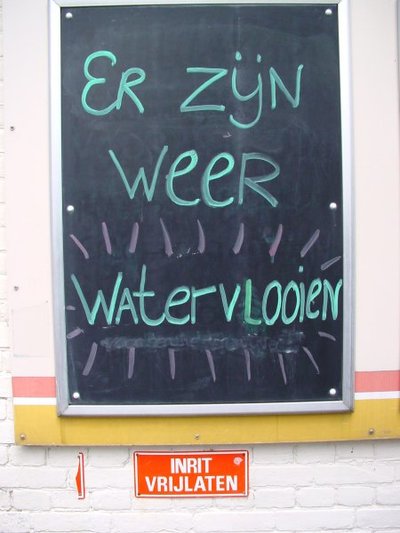 Er zijn
weer
watervlooien
INRIT
VRIJLATEN